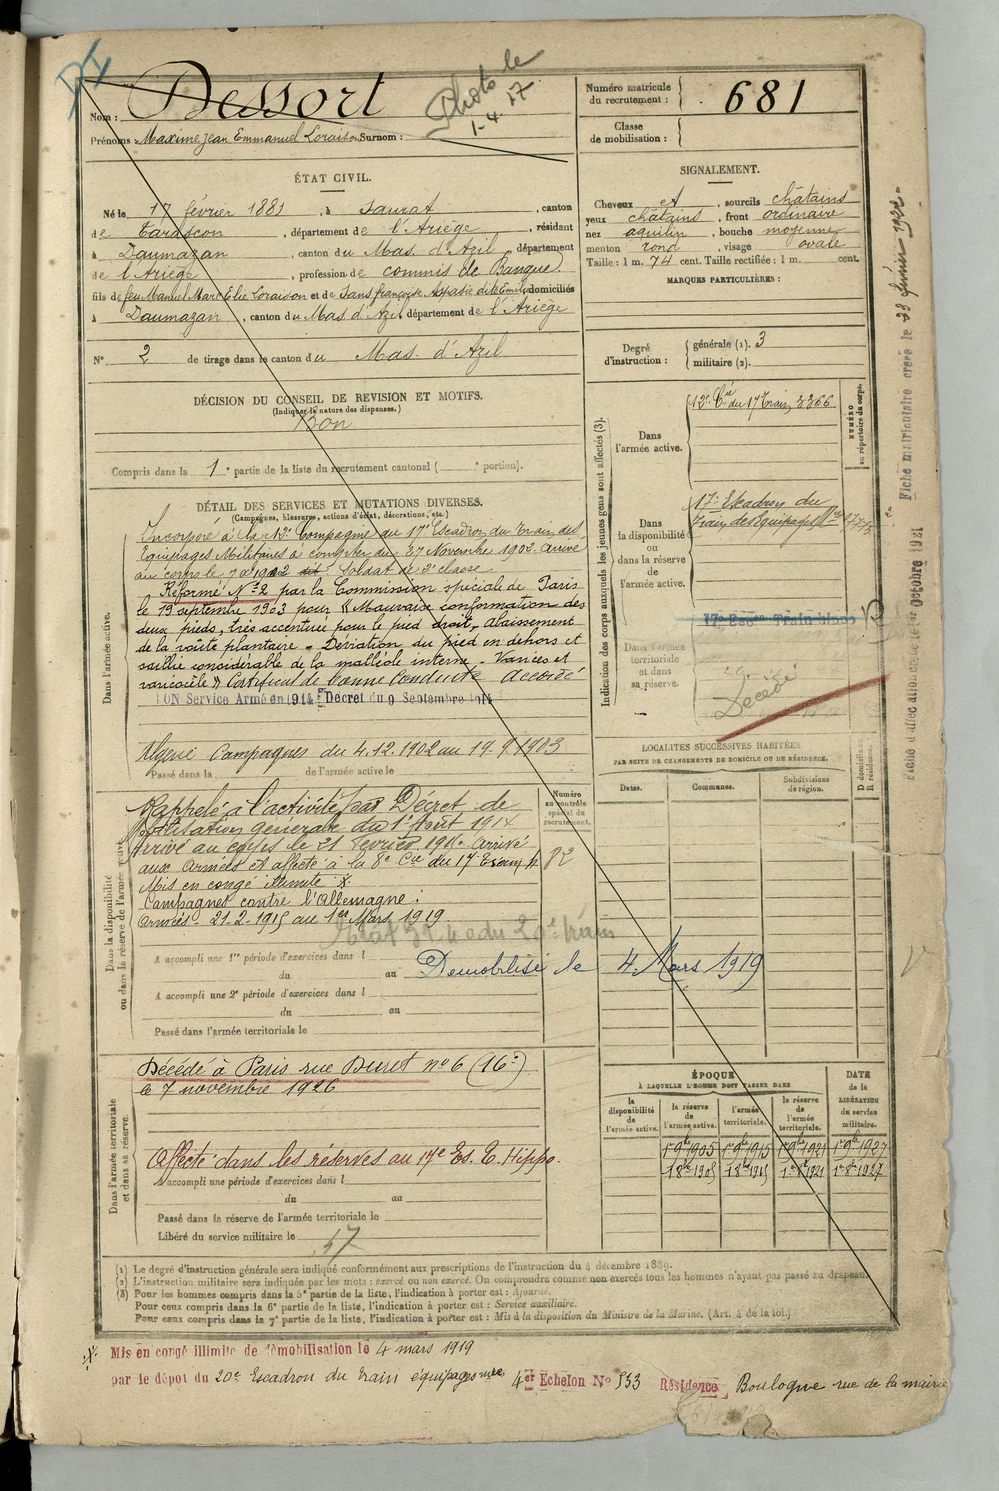 Nom : Dessort
Photo le
1-4.17
Prénoms : Maxime Jean Emmanuel Loraison Surnom :
Numéro matricule du recrutement : 681
Classe de mobilisation :
ÉTAT CIVIL.
Né le 17 février 1881, à Saurat, canton
de Tarascon, département de l'Ariège, résidant
à Daumazan, canton du Mas d'Azil, département
de l'Ariège, profession de commis de Banque
fils de feu Manuel Marc Elie Loraison et de Sans françoise Aspasie dite Emilie domiciliés
à Daumazan, canton du Mas d'Azil département de l'Ariège
N° 2 de tirage dans le canton du Mas. d'Azil
SIGNALEMENT.
Cheveux et, sourcils châtains
yeux châtains, front ordinaire
nez aquilin, bouche moyenne
menton rond, visage ovale
Taille : 1 m. 74 cent. Taille rectifiée : 1 m. cent.
MARQUES PARTICULIÈRES :
Degré d'instruction : générale (1). 3
militaire (2).
DÉCISION DU CONSEIL DE REVISION ET MOTIFS.
(Indiquer la nature des dispenses.)
Bon
Compris dans la 1e partie de la liste du recrutement cantonal ( e portion).
DÉTAIL DES SERVICES ET MUTATIONS DIVERSES.
(Campagnes, blessures, actions d'éclat, décorations, etc.)
Dans l'armée active.
Incorporé à la 12e Compagnie du 17e Escadron du Train des
Equipages Militaires à compter du 27 Novembre 1902. Arrivé
au corps le soldat de 2e classe.
Réformé N° 2 par la Commission spéciale de Paris
le 19 septembre 1903 pour « Mauvaise conformation des
deux pieds, très accentuée pour le pied droit, abaissement
de la voûte plantaire - Déviation du pied en dehors et
saillie considérable de la malléole interne - Varices et
varicocèle » Certificat de bonne conduite - Accordé
BON Service Armé en 1914 Décret du 9 Septembre 1914
Algérie Campagnes du 4.12.1902 au 19.9.1903
Passé dans la de l'armée active le
Indication des corps auxquels les jeunes gens sont affectés (3).
Dans l'armée active.
12e Cie du 17 Train 3366
NUMÉRO au répertoire du corps.
Dans la disponibilité ou dans la réserve de l'armée active.
17e Escadron du
Train des Equipages Mre
17e Escon Train
Dans l'armée territoriale et dans sa réserve.
Décédé
Fiche matriculaire créée le 23 février 1922
Octobre 1921
LOCALITÉS SUCCESSIVES HABITÉES
PAR SUITE DE CHANGEMENTS DE DOMICILE OU DE RÉSIDENCE.
Dates.
Communes.
Subdivisions de région.
D domicile
R résidence.
Dans la disponibilité ou dans la réserve de l'armée active.
Numéro au contrôle spécial du recrutement.
82
Rappelé à l'activité par Décret de
Mobilisation générale du 1er Août 1914
Arrivé au corps le 21 février 1915. Arrivé
aux Armées et affecté à la 8e Cie du 17e Escon
Mis en congé illimité X.
Campagnes contre l'Allemagne :
Armées - 21-2-1915 au 1er Mars 1919.
A accompli une 1re période d'exercices dans l
du au
Démobilisé le 4 Mars 1919
A accompli une 2e période d'exercices dans l
du au
Passé dans l'armée territoriale le
Dans l'armée territoriale et dans sa réserve.
Décédé à Paris rue Duret n° 6 (16e)
le 7 novembre 1926
Affecté dans les réserves au 17e Es. T. Hippo.
A accompli une période d'exercices dans l
du au
Passé dans la réserve de l'armée territoriale le
Libéré du service militaire le
ÉPOQUE
À LAQUELLE L'HOMME DOIT PASSER DANS
la disponibilité de l'armée active.
la réserve de l'armée active.
l'armée territoriale.
la réserve de l'armée territoriale.
DATE de la LIBÉRATION du service militaire.
1er 9bre 1905 1er 9bre 1915 1er 9bre 1921 1er 9bre 1927
1 8bre 1905 1 8bre 1915 1er 8bre 1921 1er 8bre 1927
(1) Le degré d'instruction générale sera indiqué conformément aux prescriptions de l'instruction du 4 décembre 1889.
(2) L'instruction militaire sera indiquée par les mots : exercé ou non exercé. On comprendra comme non exercés tous les hommes n'ayant pas passé au drapeau.
(3) Pour les hommes compris dans la 5e partie de la liste, l'indication à porter est : Ajourné.
Pour ceux compris dans la 6e partie de la liste, l'indication à porter est : Service auxiliaire.
Pour ceux compris dans la 7e partie de la liste, l'indication à porter est : Mis à la disposition du Ministre de la Marine. (Art. 4 de la loi.)
X. Mis en congé illimité de démobilisation le 4 mars 1919
par le dépôt du 20e Escadron du train équipages mre 4er Echelon N° 533 Résidence Boulogne rue de la mairie